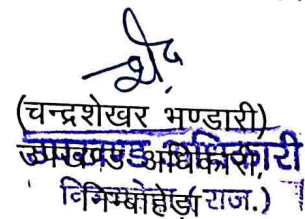 (चन्द्रशेखर भण्डारी)
उपखण्ड अधिकारी,
निम्बाहेड़ा (राज.)